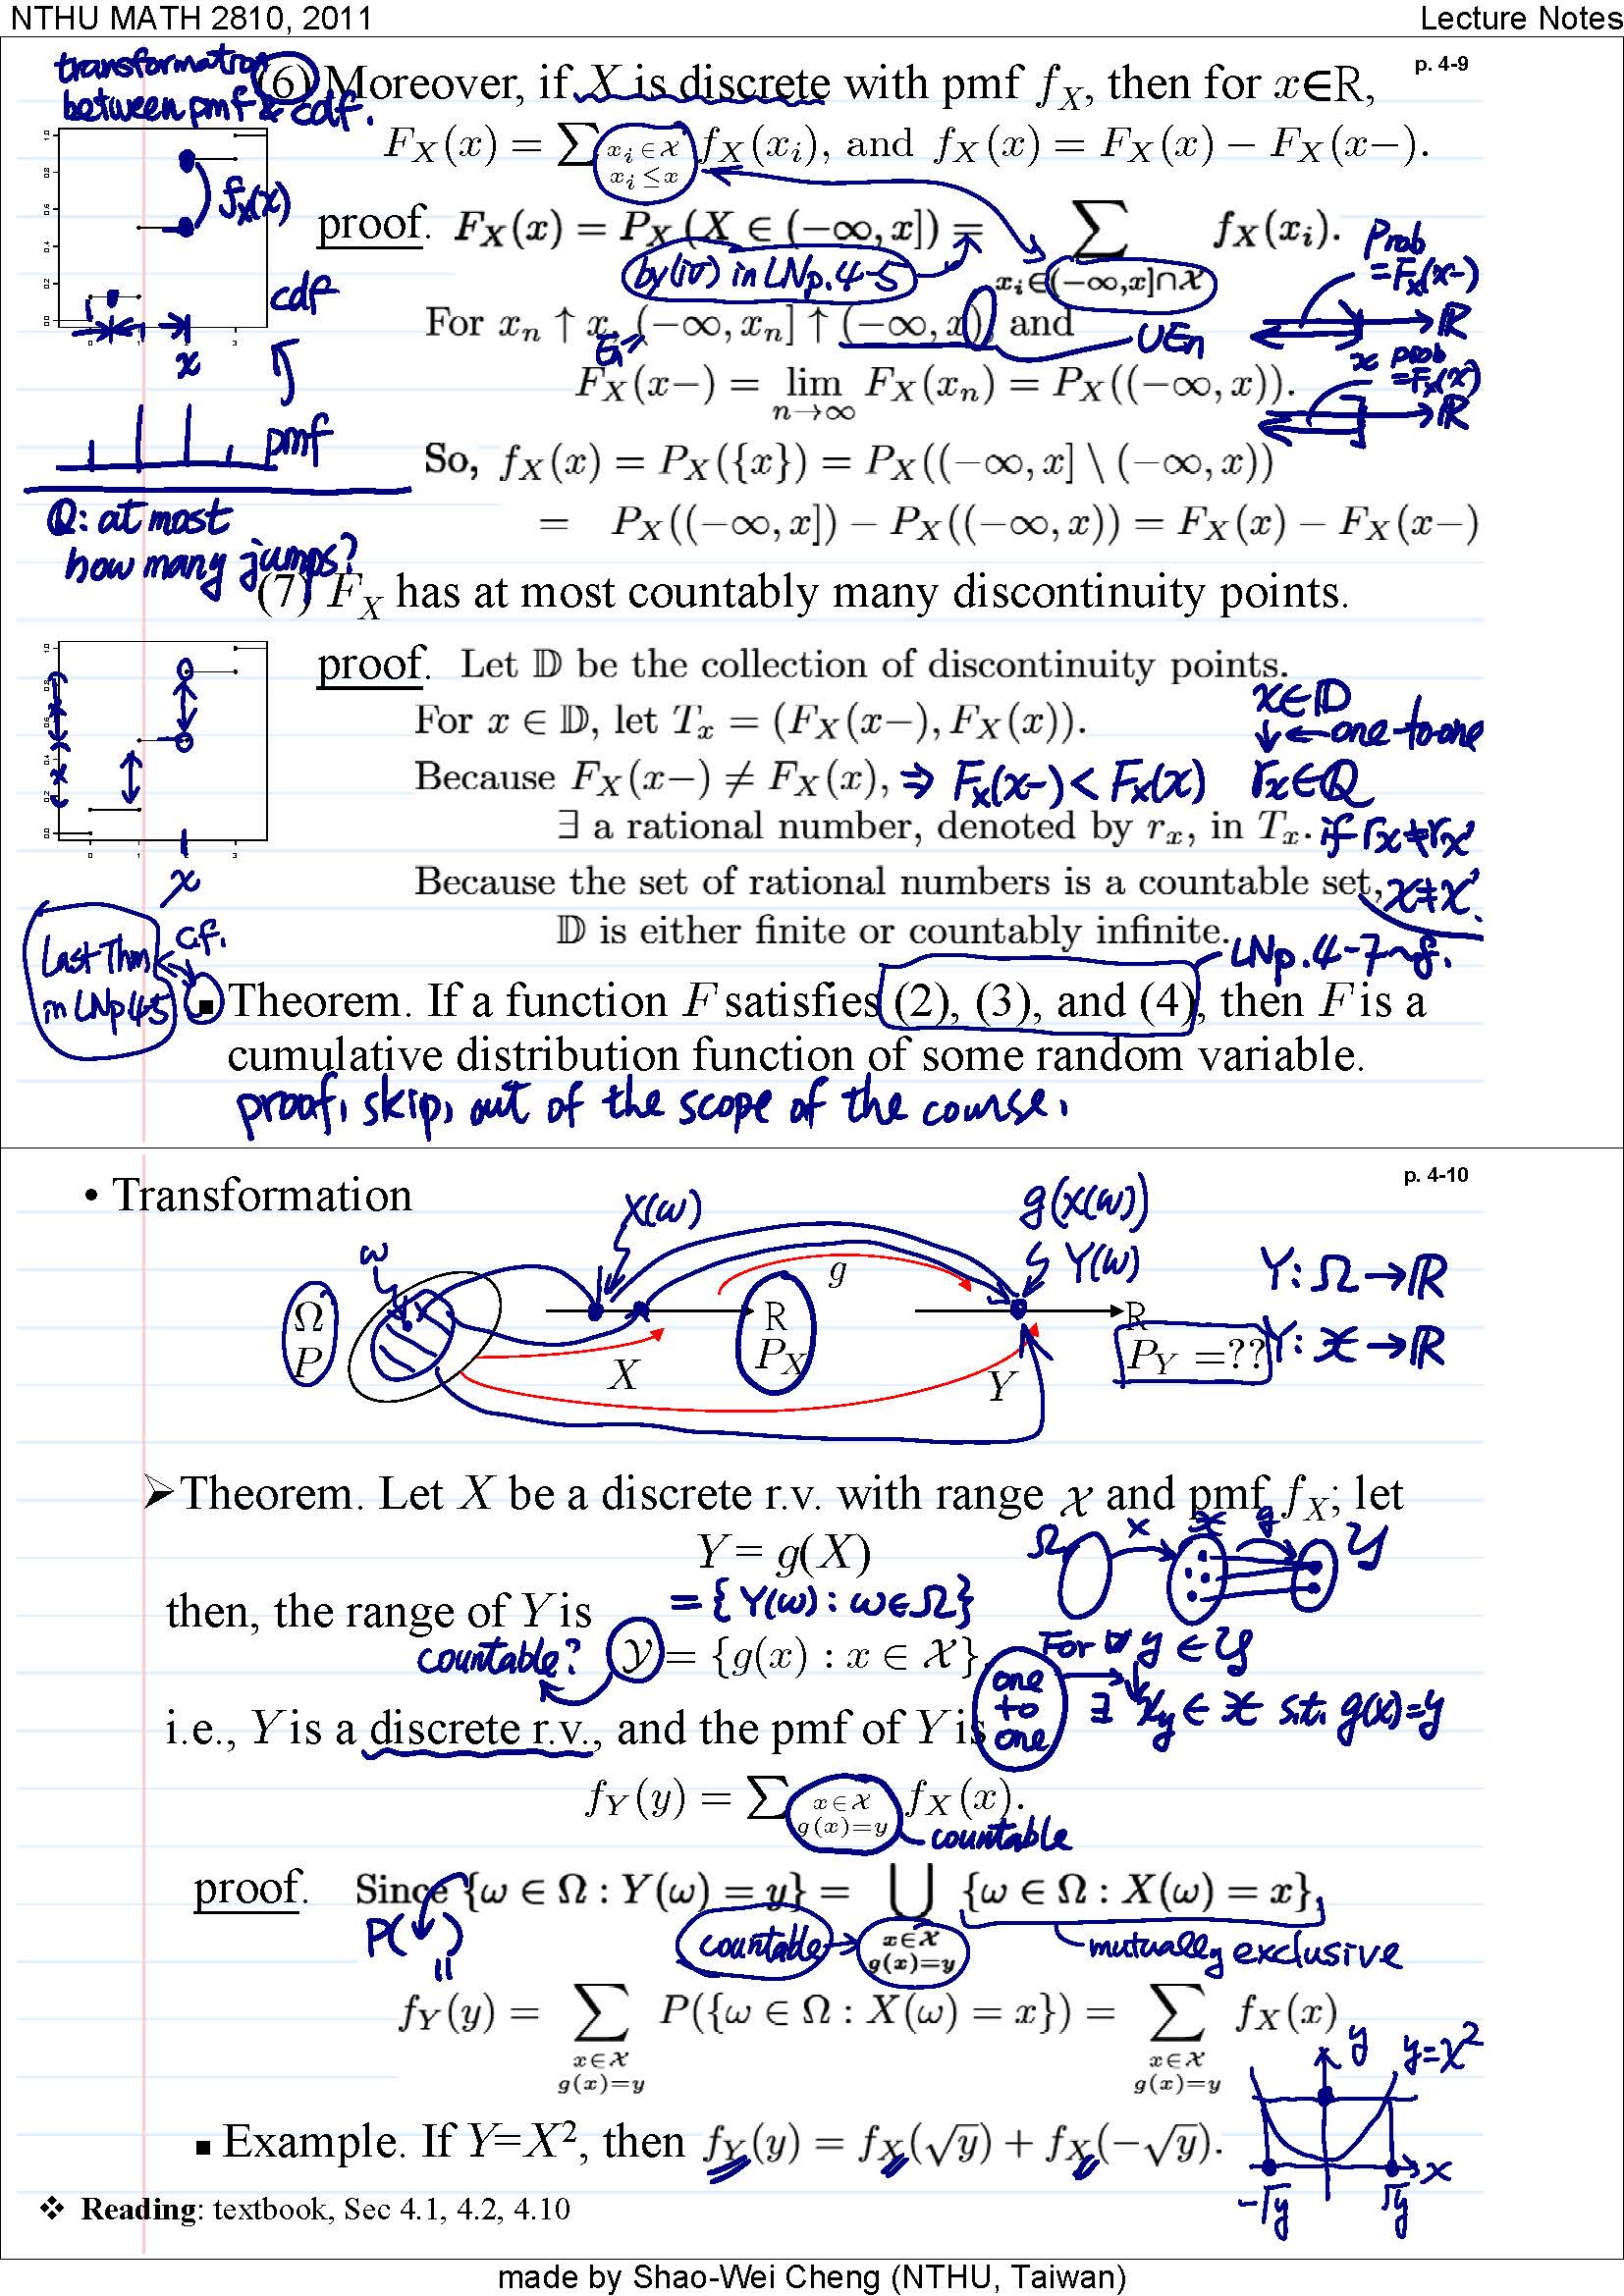 NTHU MATH 2810, 2011
Lecture Notes
p. 4-9
transformation
between pmf & cdf.
(6) Moreover, if X is discrete with pmf f_X, then for x∈R,
F_X(x) = ∑_{x_i∈𝒳, x_i≤x} f_X(x_i), and f_X(x) = F_X(x) − F_X(x−).
f_X(x)
cdf
x
pmf
proof. F_X(x) = P_X(X ∈ (−∞, x]) = ∑_{x_i∈(−∞,x]∩𝒳} f_X(x_i).
by (iv) in LNp.4-5
Prob
=F_X(x-)
ℝ
For x_n ↑ x, (−∞, x_n] ↑ (−∞, x), and
E_n
∪E_n
x
prob
=F_X(x)
ℝ
F_X(x−) = lim_{n→∞} F_X(x_n) = P_X((−∞, x)).
So, f_X(x) = P_X({x}) = P_X((−∞, x] \ (−∞, x))
= P_X((−∞, x]) − P_X((−∞, x)) = F_X(x) − F_X(x−)
Q: at most
how many jumps?
(7) F_X has at most countably many discontinuity points.
proof. Let 𝔻 be the collection of discontinuity points.
For x ∈ 𝔻, let T_x = (F_X(x−), F_X(x)).
x∈𝔻
↓ ← one-to-one
r_x∈ℚ
Because F_X(x−) ≠ F_X(x), ⇒ F_X(x-) < F_X(x)
∃ a rational number, denoted by r_x, in T_x.
if r_x ≠ r_x'
x≠x'.
Because the set of rational numbers is a countable set,
𝔻 is either finite or countably infinite.
x
Last Thm
in LNp 4-5
c.f.
LNp.4-7~8.
▪ Theorem. If a function F satisfies (2), (3), and (4), then F is a
cumulative distribution function of some random variable.
proof, skip, out of the scope of the course.
p. 4-10
• Transformation
ω
X(ω)
g(X(ω))
Y(ω)
Y: Ω → ℝ
Y: 𝒳 → ℝ
Ω
P
X
R
P_X
g
Y
R
P_Y =??
➢Theorem. Let X be a discrete r.v. with range 𝒳 and pmf f_X; let
Y = g(X)
Ω X 𝒳 g 𝒴
then, the range of Y is
= {Y(ω) : ω∈Ω}
countable?
𝒴 = {g(x) : x ∈ 𝒳},
For ∀ y ∈ 𝒴
∃ x_y ∈ 𝒳 s.t. g(x)=y
one
to
one
i.e., Y is a discrete r.v., and the pmf of Y is
f_Y(y) = ∑_{x∈𝒳, g(x)=y} f_X(x).
countable
proof. Since {ω ∈ Ω : Y(ω) = y} = ⋃_{x∈𝒳, g(x)=y} {ω ∈ Ω : X(ω) = x},
P( )
=
countable
mutually exclusive
f_Y(y) = ∑_{x∈𝒳, g(x)=y} P({ω ∈ Ω : X(ω) = x}) = ∑_{x∈𝒳, g(x)=y} f_X(x)
y
y=x²
x
-√y
√y
▪ Example. If Y=X², then f_Y(y) = f_X(√y) + f_X(−√y).
❖ Reading: textbook, Sec 4.1, 4.2, 4.10
made by Shao-Wei Cheng (NTHU, Taiwan)